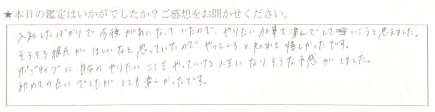 ★本日の鑑定はいかがでしたか？ご感想をお聞かせください。
入社したばかりで今後が気になっていたので、やりたい仕事で進んでしていこうと思えました。
そろそろ彼氏がほしいなと思っていたのでやってくると知れて嬉しかったです。
ポジティブに自分のやりたいことをやっていける人生になりそうな予感がしました。
初めての占いでしたがとても楽しかったです。